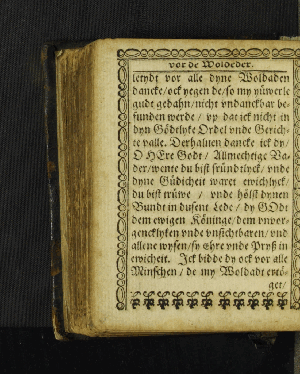 vor de Woldeder.
letydt vor alle dyne Woldaden
dancke/ock yegen de/so my yüwerle
gudt gedahn/nicht vndanckbar be-
funden werde/ vp dat ick nicht in
dyn Gödtlyke Ordel vnde Gerich-
te valle. Derhaluen dancke ick dy/
O HEre Godt/ Allmechtige Va-
der/wente du bist fründtlyck/ vnde
dyne Güdicheit waret ewichlyck/
du bist trüwe / vnde hölst dynen
Bundt in dusent Lede/ dy GOdt
dem ewigen Köninge/dem vnvor-
gencklyken vnde vnsichtbaren/ vnd
allene wysen/sy Ehre vnde Pryß in
ewicheit. Ick bidde dy ock vor alle
Minschen/ de my Woldadt ertö-
get/